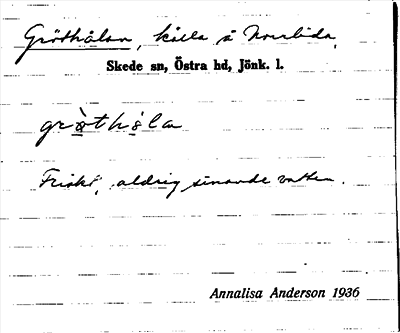 Gröthålan, källa å Norrlida,
Skede sn, Östra hd, Jönk. l.
grö̀thåla
Friskt, aldrig sinande vatten.
Annalisa Anderson 1936